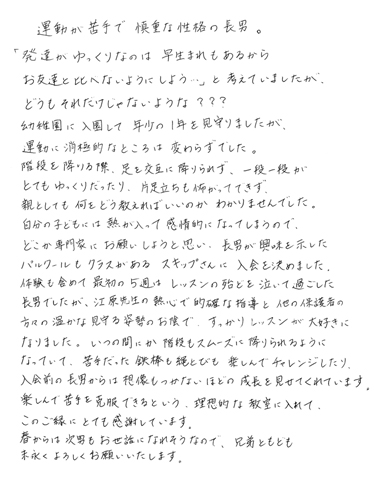 運動が苦手で慎重な性格の長男。
「発達がゆっくりなのは早生まれもあるから
お友達と比べないようにしよう…」と考えていましたが、
どうもそれだけじゃないような???
幼稚園に入園して年少の1年を見守りましたが、
運動に消極的なところは変わらずでした。
階段を降りる際、足を交互に降りられず、一段一段が
とてもゆっくりだったり、片足立ちも怖がってできず。
親としても何をどう教えればいいのかわかりませんでした。
自分の子どもには熱が入って感情的になってしまうので、
どこか専門家にお願いしようと思い、長男が興味を示した
パルクールもクラスがあるスキップさんに入会を決めました。
体験も含めて最初の5週はレッスンの殆どを泣いて過ごした
長男でしたが、江原先生の熱心で的確な指導と他の保護者の
方々の温かな見守る姿勢のお陰で、すっかりレッスンが大好きに
なりました。いつの間にか階段もスムーズに降りられるように
なっていて、苦手だった鉄棒も縄とびも楽しんでチャレンジしたり、
入会前の長男からは想像もつかないほどの成長を見せてくれています。
楽しんで苦手を克服できるという、理想的な教室に入れて、
このご縁にとても感謝しています。
春からは次男もお世話になれそうなので、兄弟ともども
末永くよろしくお願いいたします。